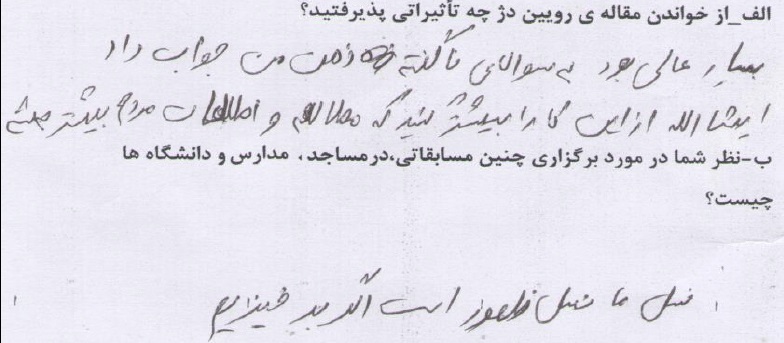 الف_از خواندن مقاله ی رویین دژ چه تأثیراتی پذیرفتید؟
بسیار عالی بود به سوالای ناگفته ذهن من جواب داد
ایشاالله از این کارا بیشتر کنید که مطالعه و اطلاعات مردم بیشتر
ب-نظر شما در مورد برگزاری چنین مسابقاتی،درمساجد، مدارس و دانشگاه ها
چیست؟
نسل ما نسل ظهور است اگر بر خیزیم